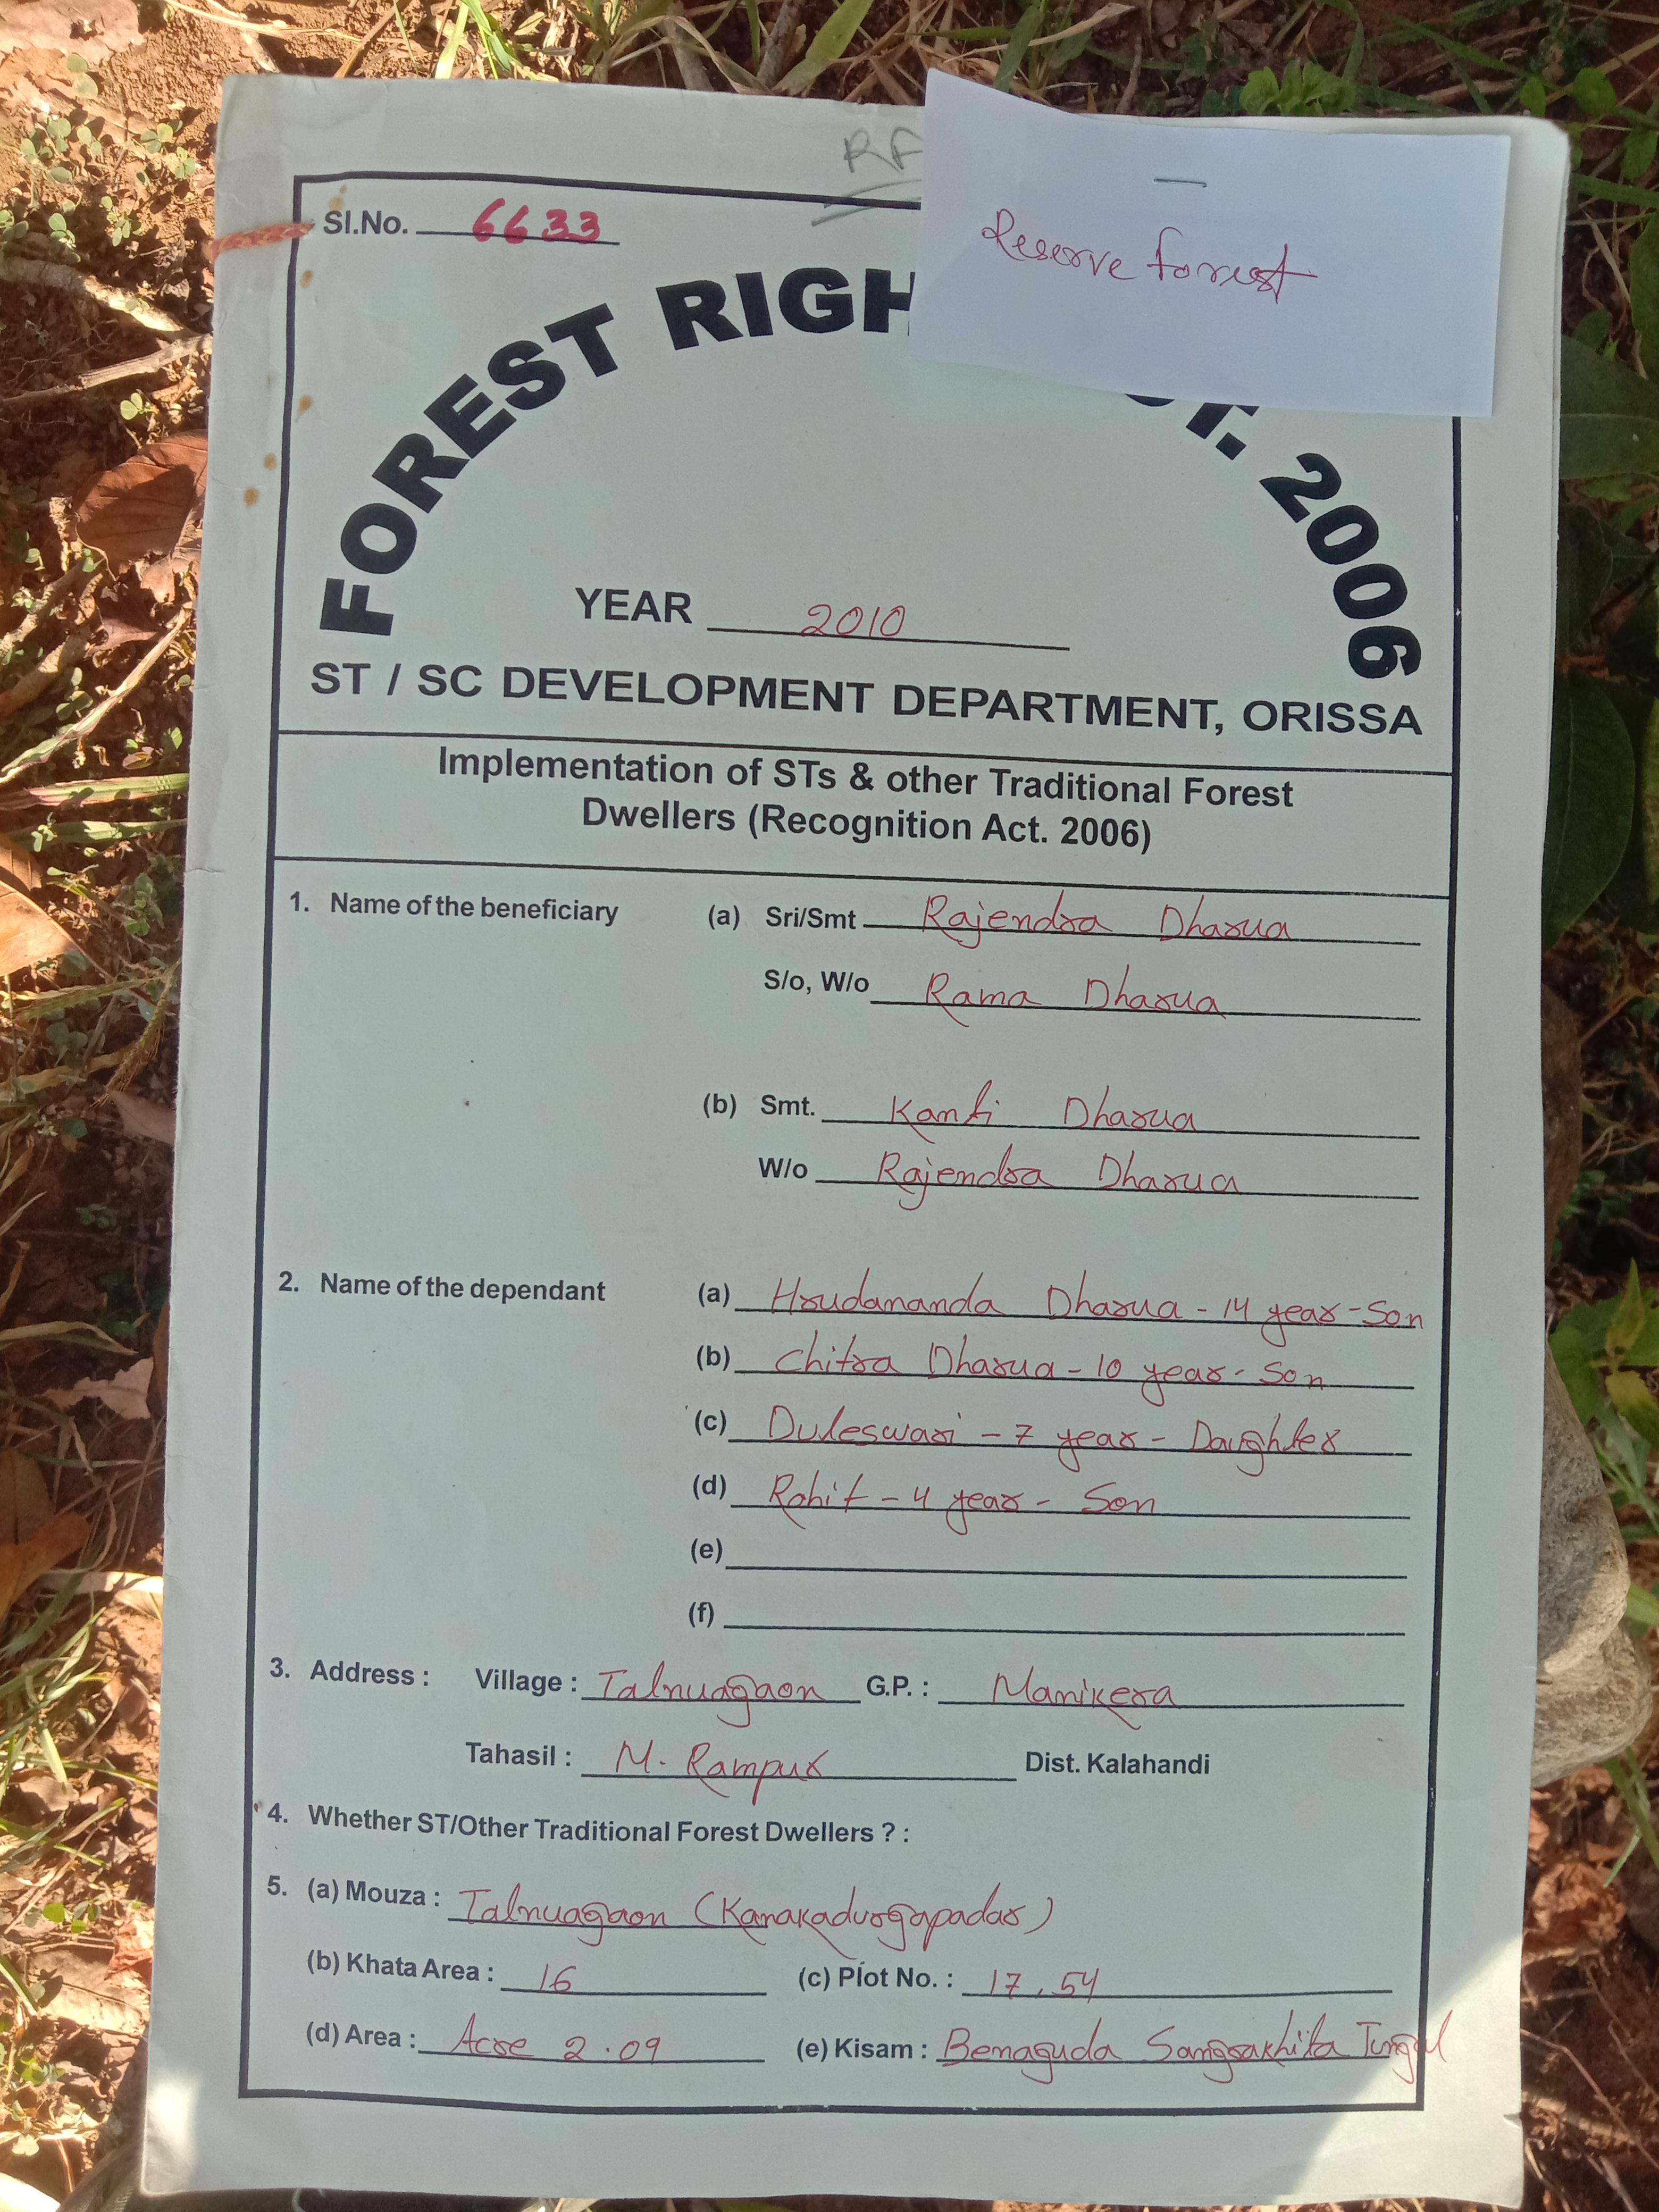 RF
Reserve forest
Sl.No. 6633
FOREST RIGH T. 2006
YEAR 2010
ST / SC DEVELOPMENT DEPARTMENT, ORISSA
Implementation of STs & other Traditional Forest
Dwellers (Recognition Act. 2006)
1. Name of the beneficiary (a) Sri/Smt Rajendra Dharua
S/o, W/o Rama Dharua
(b) Smt. Kanti Dharua
W/o Rajendra Dharua
2. Name of the dependant (a) Hrudananda Dharua - 14 year - Son
(b) Chitra Dharua - 10 year - Son
(c) Duleswari - 7 year - Daughter
(d) Rohit - 4 year - Son
(e)
(f)
3. Address : Village : Talnuagaon G.P. : Manikera
Tahasil : M. Rampur Dist. Kalahandi
4. Whether ST/Other Traditional Forest Dwellers ? :
5. (a) Mouza : Talnuagaon (Kanakadurgapadar)
(b) Khata Area : 16 (c) Plot No. : 17, 54
(d) Area : Acre 2.09 (e) Kisam : Benaguda Sangrakhita Jungal